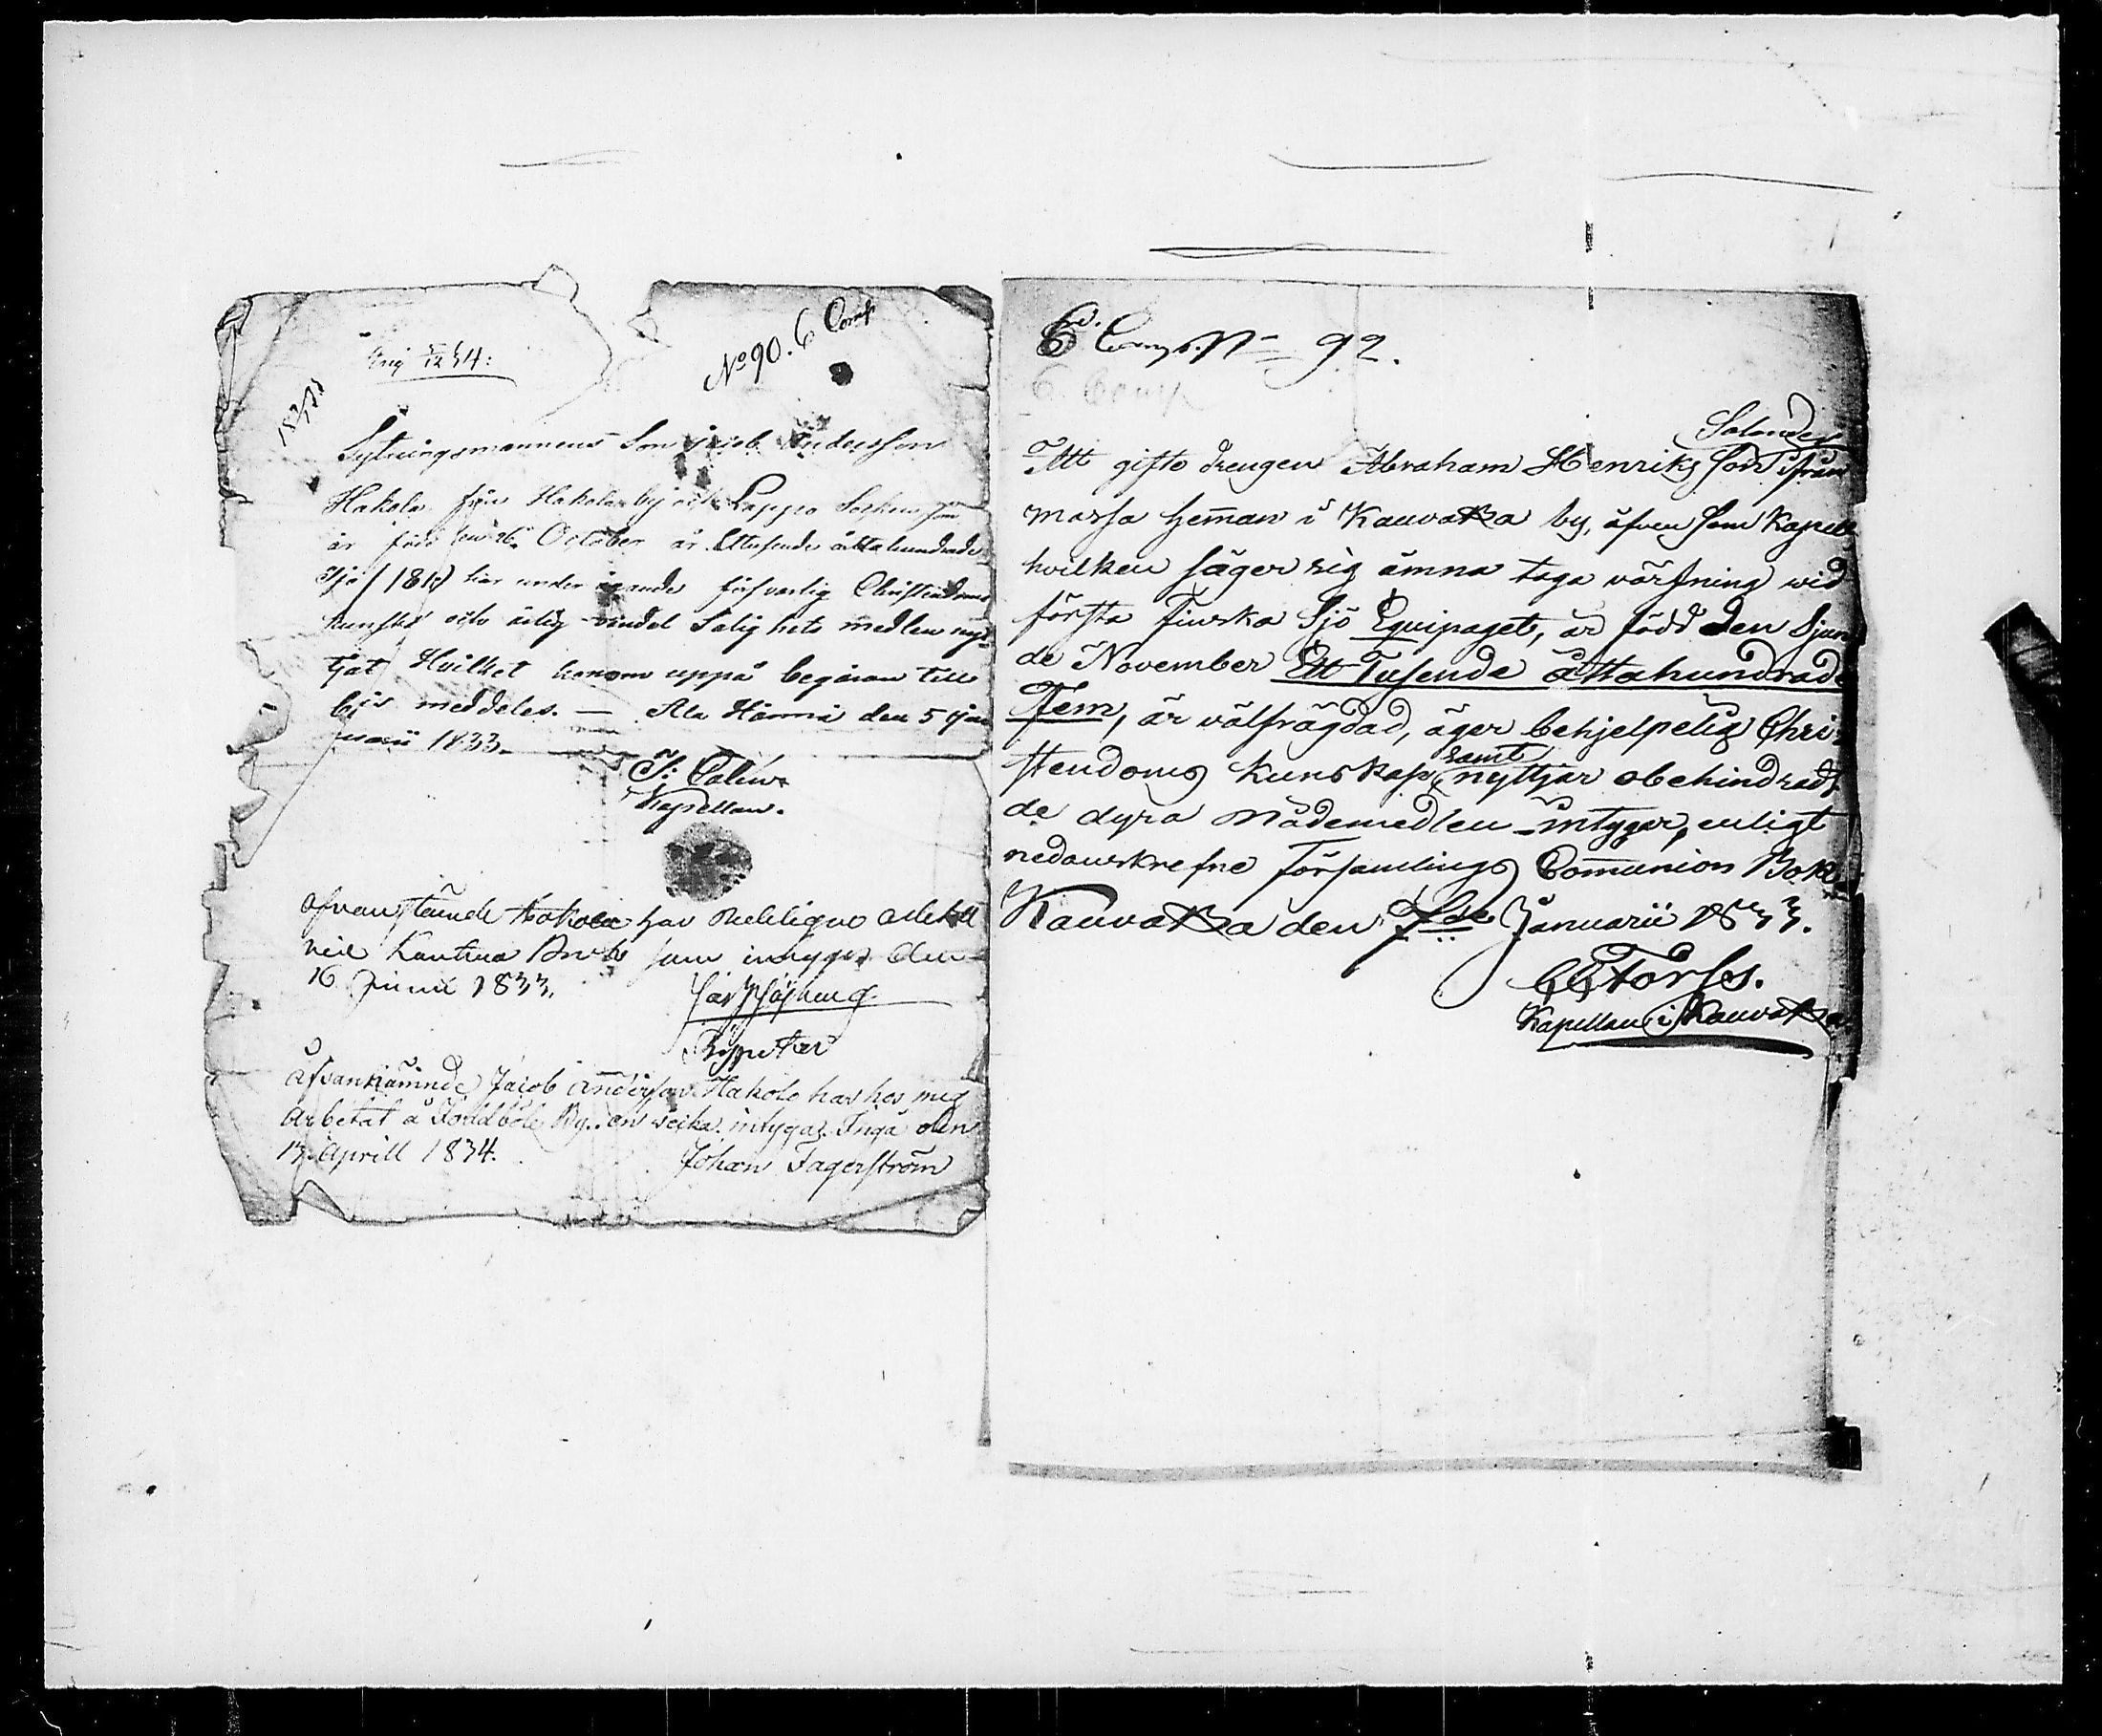 No 90. 6 Comp
Sytningsmannens Son Jacob Andersson
Hakola från Hakola by och Lappo Socken
är född den 26 October år Ettusende åttahundrade
har under ägande försvarlig Christendoms
kunskap Salighets medlen nyt
tjat Hvilket honom uppå begäran till
bis meddeles. — Ala Härmä den 5 Jan
uarii 1833.
Kapellan.
ofvanstående Hakola har
Bruk som intygas den
16 Junii 1833.
Åfvannämnde Jacob Andersson Hakola har hos mig
arbetat å By. en vecka intygas. Ingå den
Aprill 1834.
Johan Fagerström
6 Comp. No 92.
6. Comp
Salander
Att gifte drengen Abraham Henriks Son ifrån
Massa heman i Kauvatsa by, äfven som Kapell,
hvilken säger sig ämna taga värfning wid
första Finska Sjö Equipaget, är född den Sjun
de November Ett Tusende åttahundrade
Fem, är välfrägdad, äger behjelpelig Chri-
stendoms kunskap samt nyttjar obehindradt
de dyra Nådemedlen intygar, enligt
nedanskrefne Församlings Communion Bok.
Kauvatsa den 7de Januarii 1833.
Forss.
Kapellan i Kauvatsa.